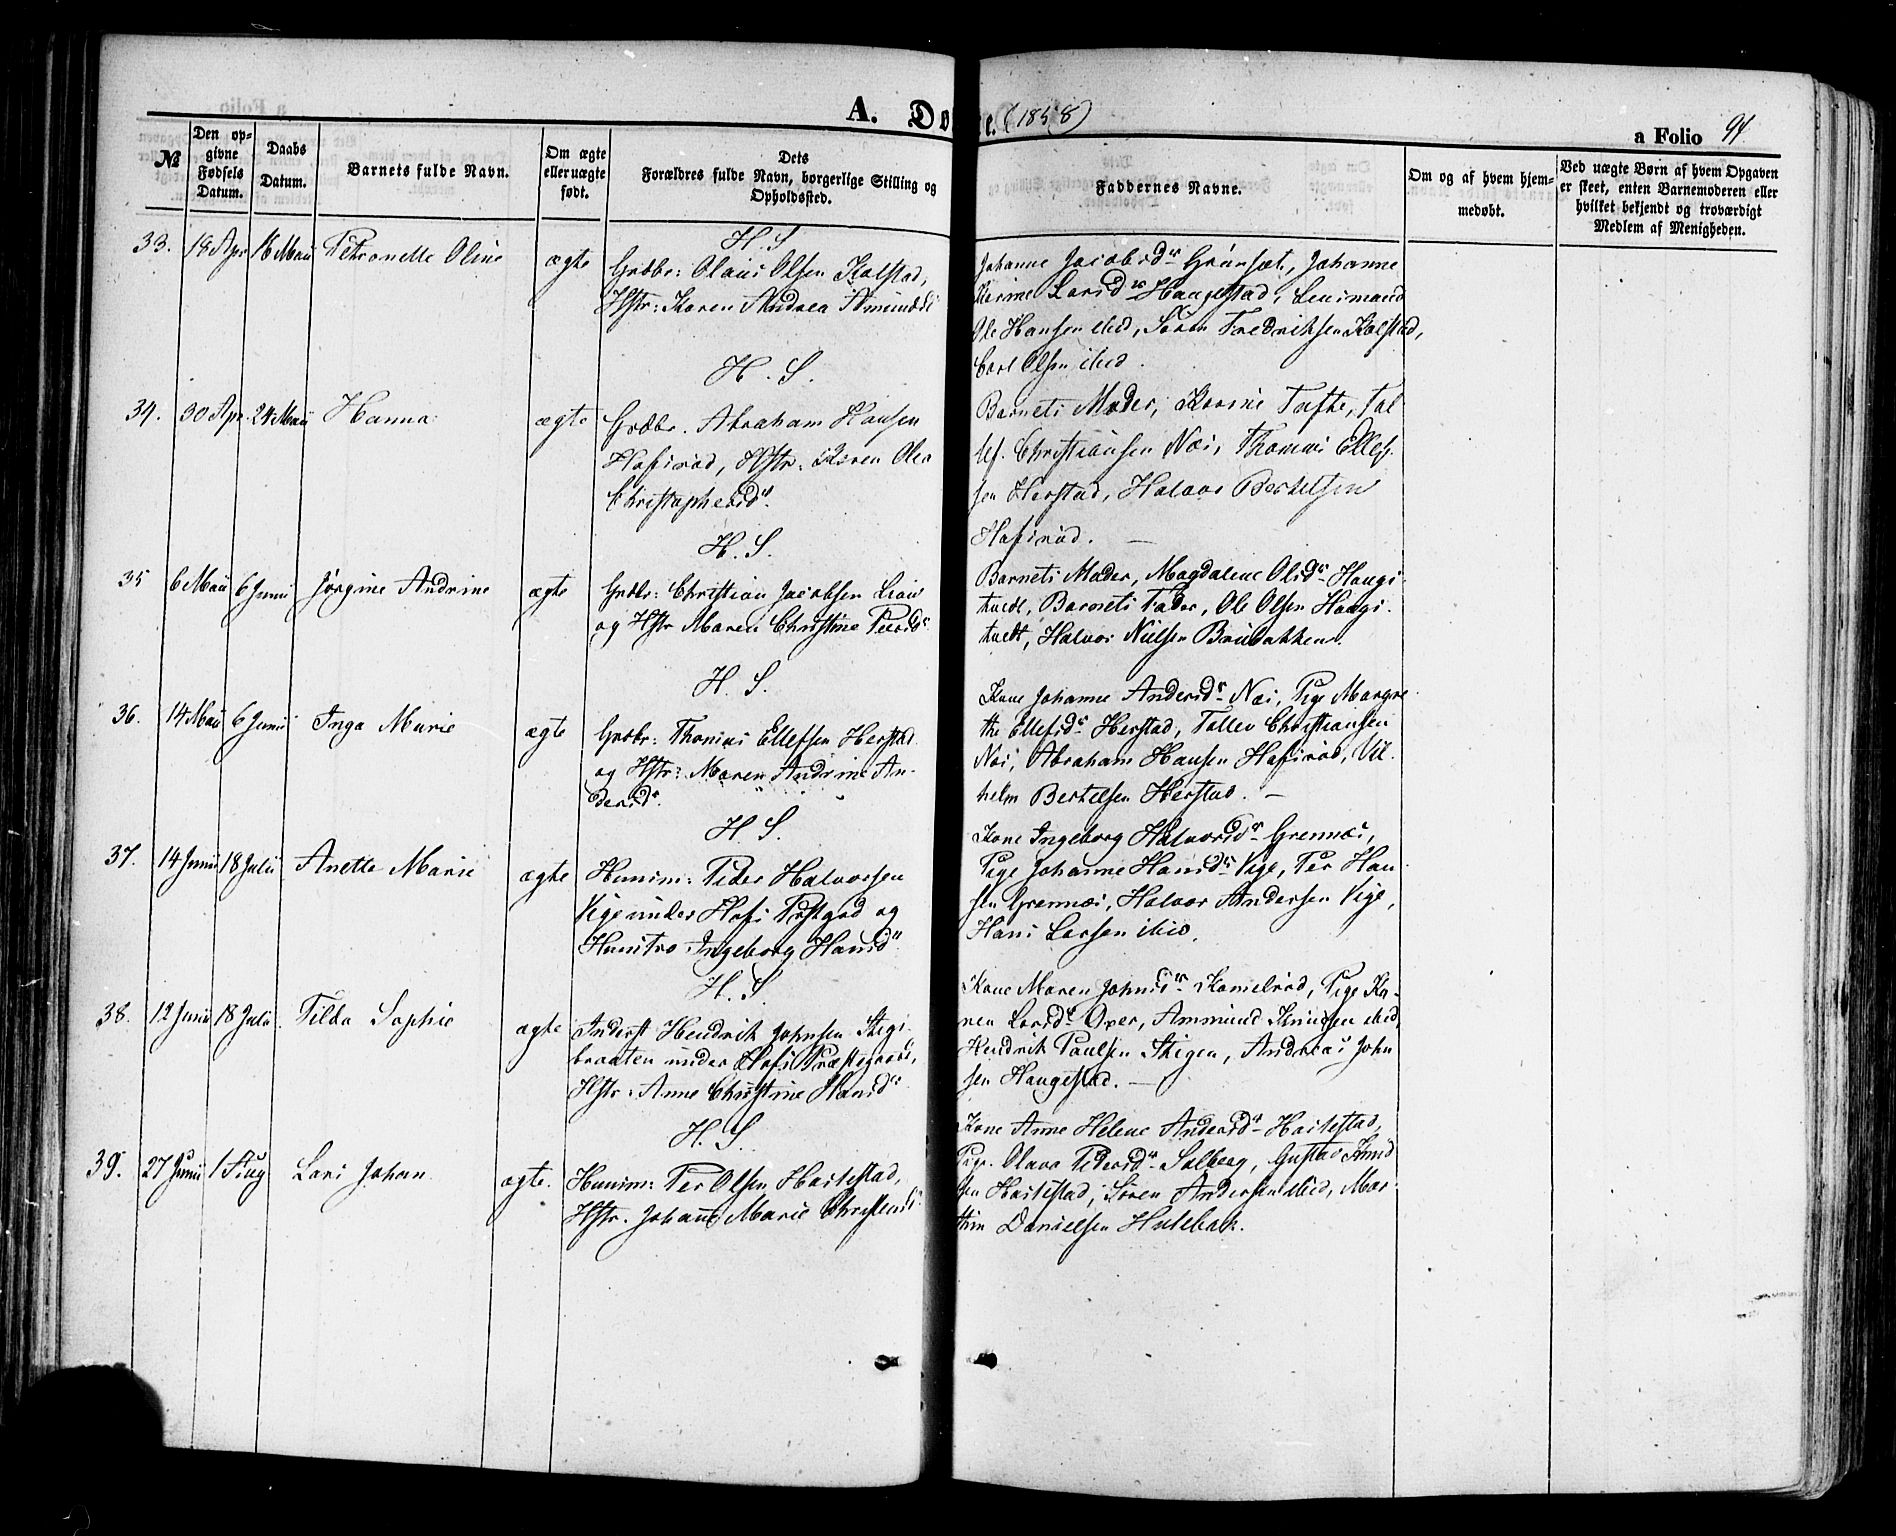 A. Døbte. (1858)
a Folio 94.
№
Den opgivne Fødsels Datum.
Daabs Datum.
Barnets fulde Navn.
Om ægte eller uægte født.
Dets Forældres fulde Navn, borgerlige Stilling og Opholdssted.
Faddernes Navne.
Om og af hvem hjemmedøbt.
Ved uægte Børn af hvem Opgaven er skeet, enten Barnemoderen eller hvilket bekjendt og troværdigt Medlem af Menigheden.
H. S
33. 18 Apr 16 Maii Petronelle Oline ægte
Grdbr: Olaus Olsen Kolstad,
Hstr: Karen Andrea Amundsd
Johanne Jacobsdr Grønset, Johanne
Karine Larsdr Haugestad, Lensmand
Ole Hansen ibid, Søren Fredriksen Kolstad,
Carl Olsen ibid.
H. S.
34. 30 Apr. 24 Maii Hanna ægte
Grdbr. Abraham Hansen
Hafsrød, Hstr: Karen Olea
Christophersdr.
Barnets Moder, Karine Tufte, Tol
lef. Christiansen Næs, Thomas Ellef
sen Herstad, Halvor Bertelsen
Hafsrød.
H. S.
35 6 Maii 6 Junii Jørgine Andrine ægte
Grdbr: Christian Jacobsen Lian
og Hstr Maren Christine Persdr
Barnets Moder, Magdalene Olsdr Haugs
tvedt, Barnets Fader, Ole Olsen Haugs
tvedt, Halvor Nielsen Brubakken.
H. S.
36. 14 Maii 6 Junii Inga Marie ægte
Grdbr: Thomas Ellefsen Herstad
og Hstr: Maren Andrine An-
dersdr.
Kone Johanne Andersdr Næs, Pige Margre
the Ellefsdr Herstad, Tollev Christiansen
Næs, Abraham Hansen Hafsrød, Vil
helm Bertelsen Herstad. —
H. S.
37. 14 Junii 18 Julii Anette Marie ægte
Husm: Peder Halvorsen
Vige under Hofs Præstgad og
Hustro Ingeborg Hansdr
Kone Ingeborg Halvorsdr Grennes,
Pige Johanne Hansdr Vige, Per Han
sen Grennes, Halvor Andersen Vige,
Hans Larsen ibid.
H. S.
38. 12 Junii 18 Julii Tilda Sophie ægte
Inderst Hendrik Johnsen Stigs
braaten under Hofs Præstegaard,
Hstr: Anne Christine Hansdr
Kone Maren Johnsdr Kamelrød, Pige Ka-
ren Larsdr Oxer, Ammund Knudsen ibid,
Hendrik Paulsen Stigen, Andreas John
sen Haugestad. —
H. S.
39. 27 Junii 1 Aug Lars Johan ægte.
Husm: Per Olsen Hastestad,
Hstr. Johanne Marie Christensdr
Kone Anne Helene Andersdr Hastestad,
Pige. Olava Pedersdr Solberg, Gustav Knud
sen Hastestad, Søren Andersen ibid, Mar
thin Danielsen Hulebak.